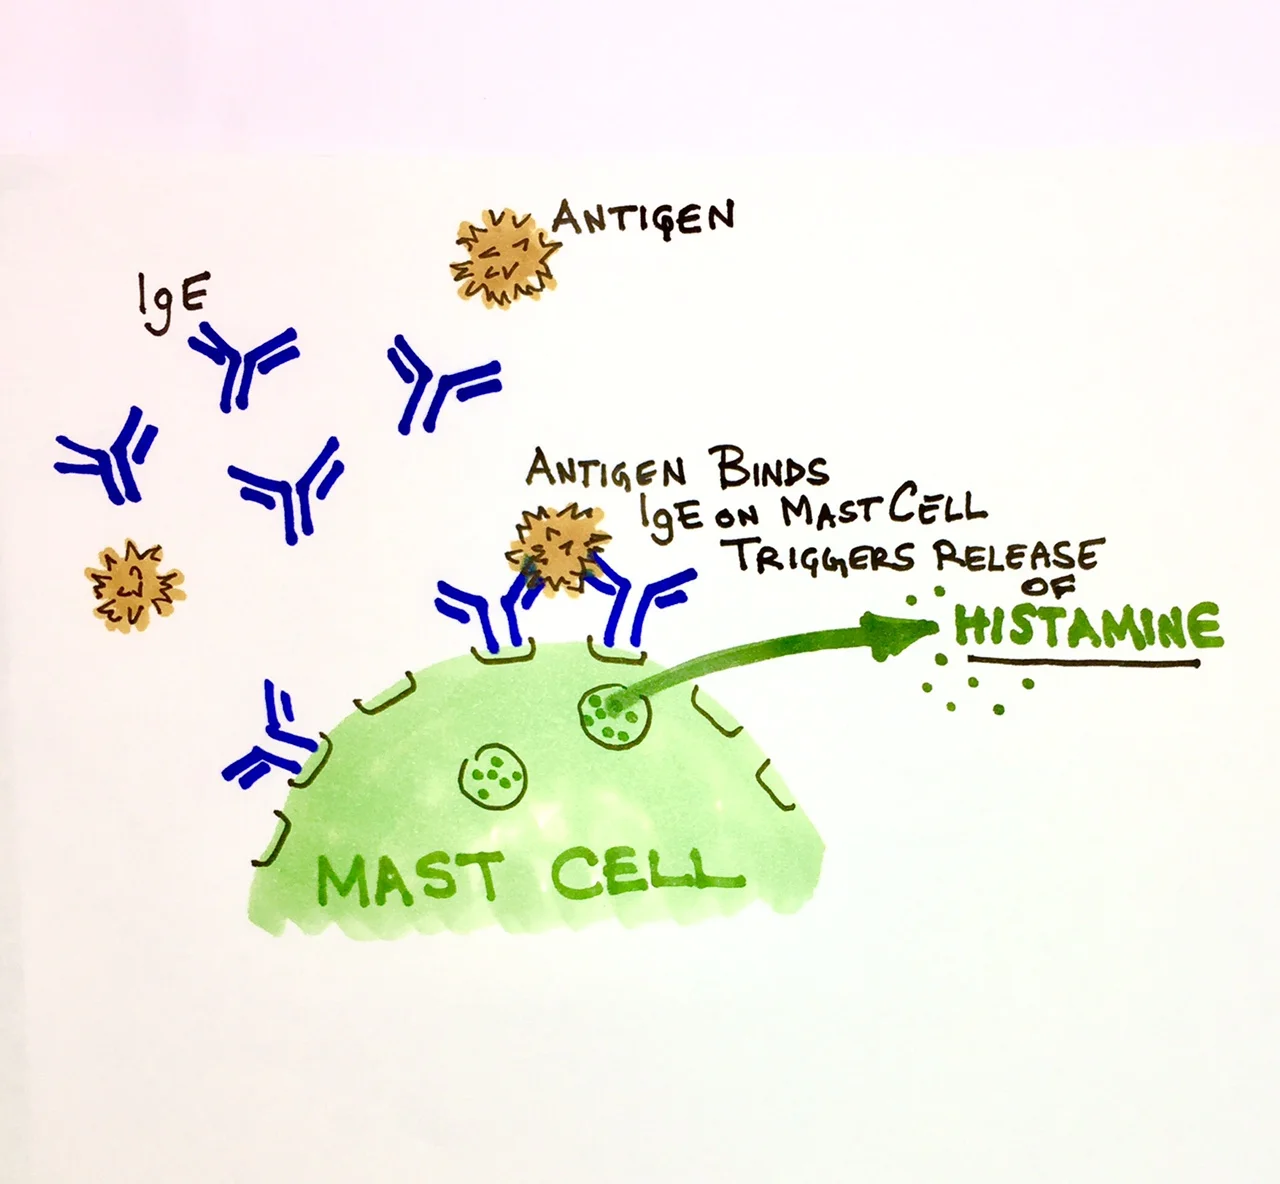 ANTIGEN
IgE
ANTIGEN BINDS
IgE ON MAST CELL
TRIGGERS RELEASE
OF
HISTAMINE
MAST CELL